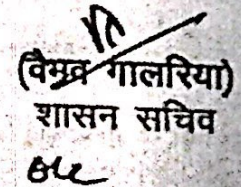 (वैभव गालरिया)
शासन सचिव